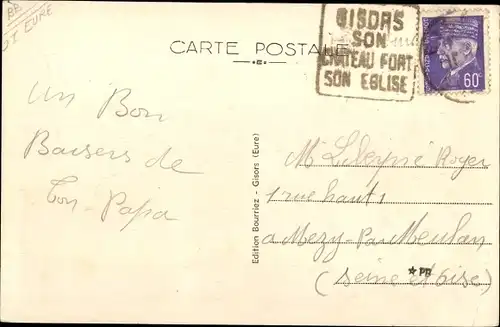 BB
EURE
CARTE POSTALE
GISORS
SON
CHATEAU FORT
SON EGLISE
60
Un Bon
Baisers de
Ton-Papa
Edition Bourriez - Gisors (Eure)
Mr Roger
1 rue haut
a Mezy-Par Meulan
(Seine et Oise)
★PR